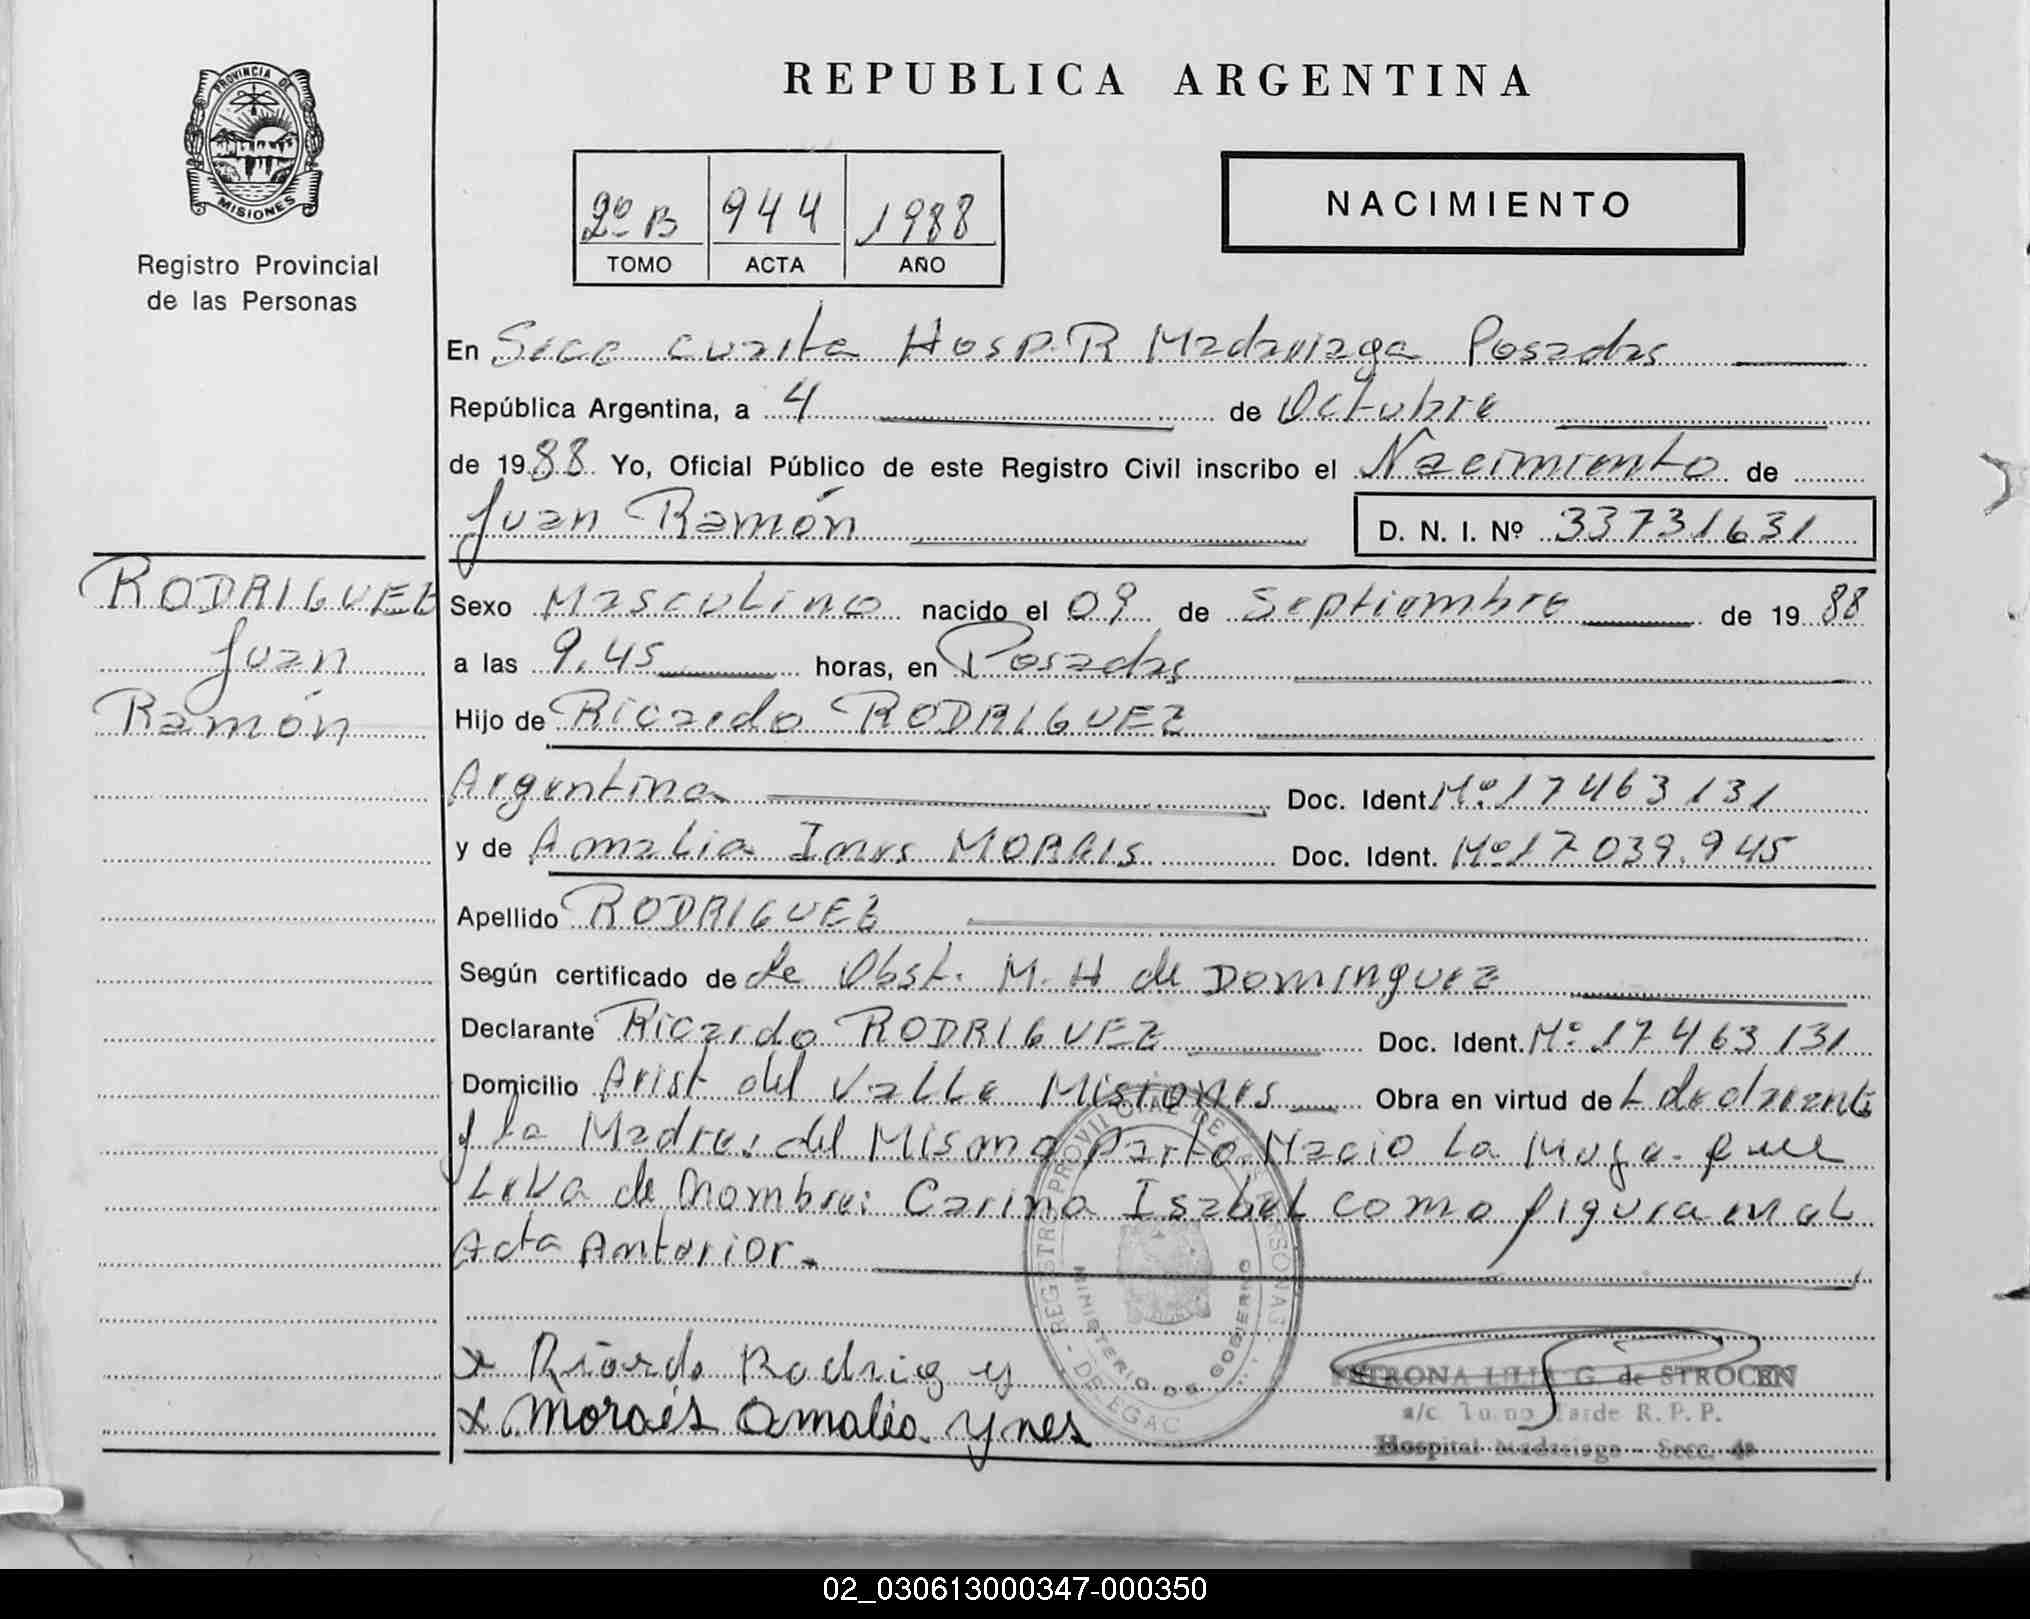 PROVINCIA DE
MISIONES
Registro Provincial
de las Personas
REPUBLICA ARGENTINA
2º B 944 1988
TOMO ACTA AÑO
NACIMIENTO
En Secc cuarta Hosp. R Madariaga Posadas
República Argentina, a 4 de Octubre
de 1988 Yo, Oficial Público de este Registro Civil inscribo el Nacimiento de
Juan Ramón D. N. I. Nº 33731631
RODRIGUEZ
Juan
Ramón
Sexo Masculino nacido el 09 de Septiembre de 1988
a las 9.45 horas, en Posadas
Hijo de Ricardo RODRIGUEZ
Argentina Doc. Ident. Mº 17463131
y de Amalia Ines MORAIS Doc. Ident. Mº 17039.945
Apellido RODRIGUEZ
Según certificado de de Obst. M. H de Dominguez
Declarante Ricardo RODRIGUEZ Doc. Ident. Mº 17463131
Domicilio Arist del Valle Misiones Obra en virtud de L declarante
y la Madre: del Mismo parto Nacio la que
Leva de Nombre: Carina Isabel como figura en el
Acta Anterior.
x Ricardo Rodrig
x Morais Amalia Ynes
REGISTRO PROVINCIAL DE LAS PERSONAS
MINISTERIO DE GOBIERNO
DELEGAC
PETRONA LILIA G. de STROCEN
a/c Turno Tarde R. P. P.
Hospital Madariaga - Secc. 4a
02_030613000347-000350